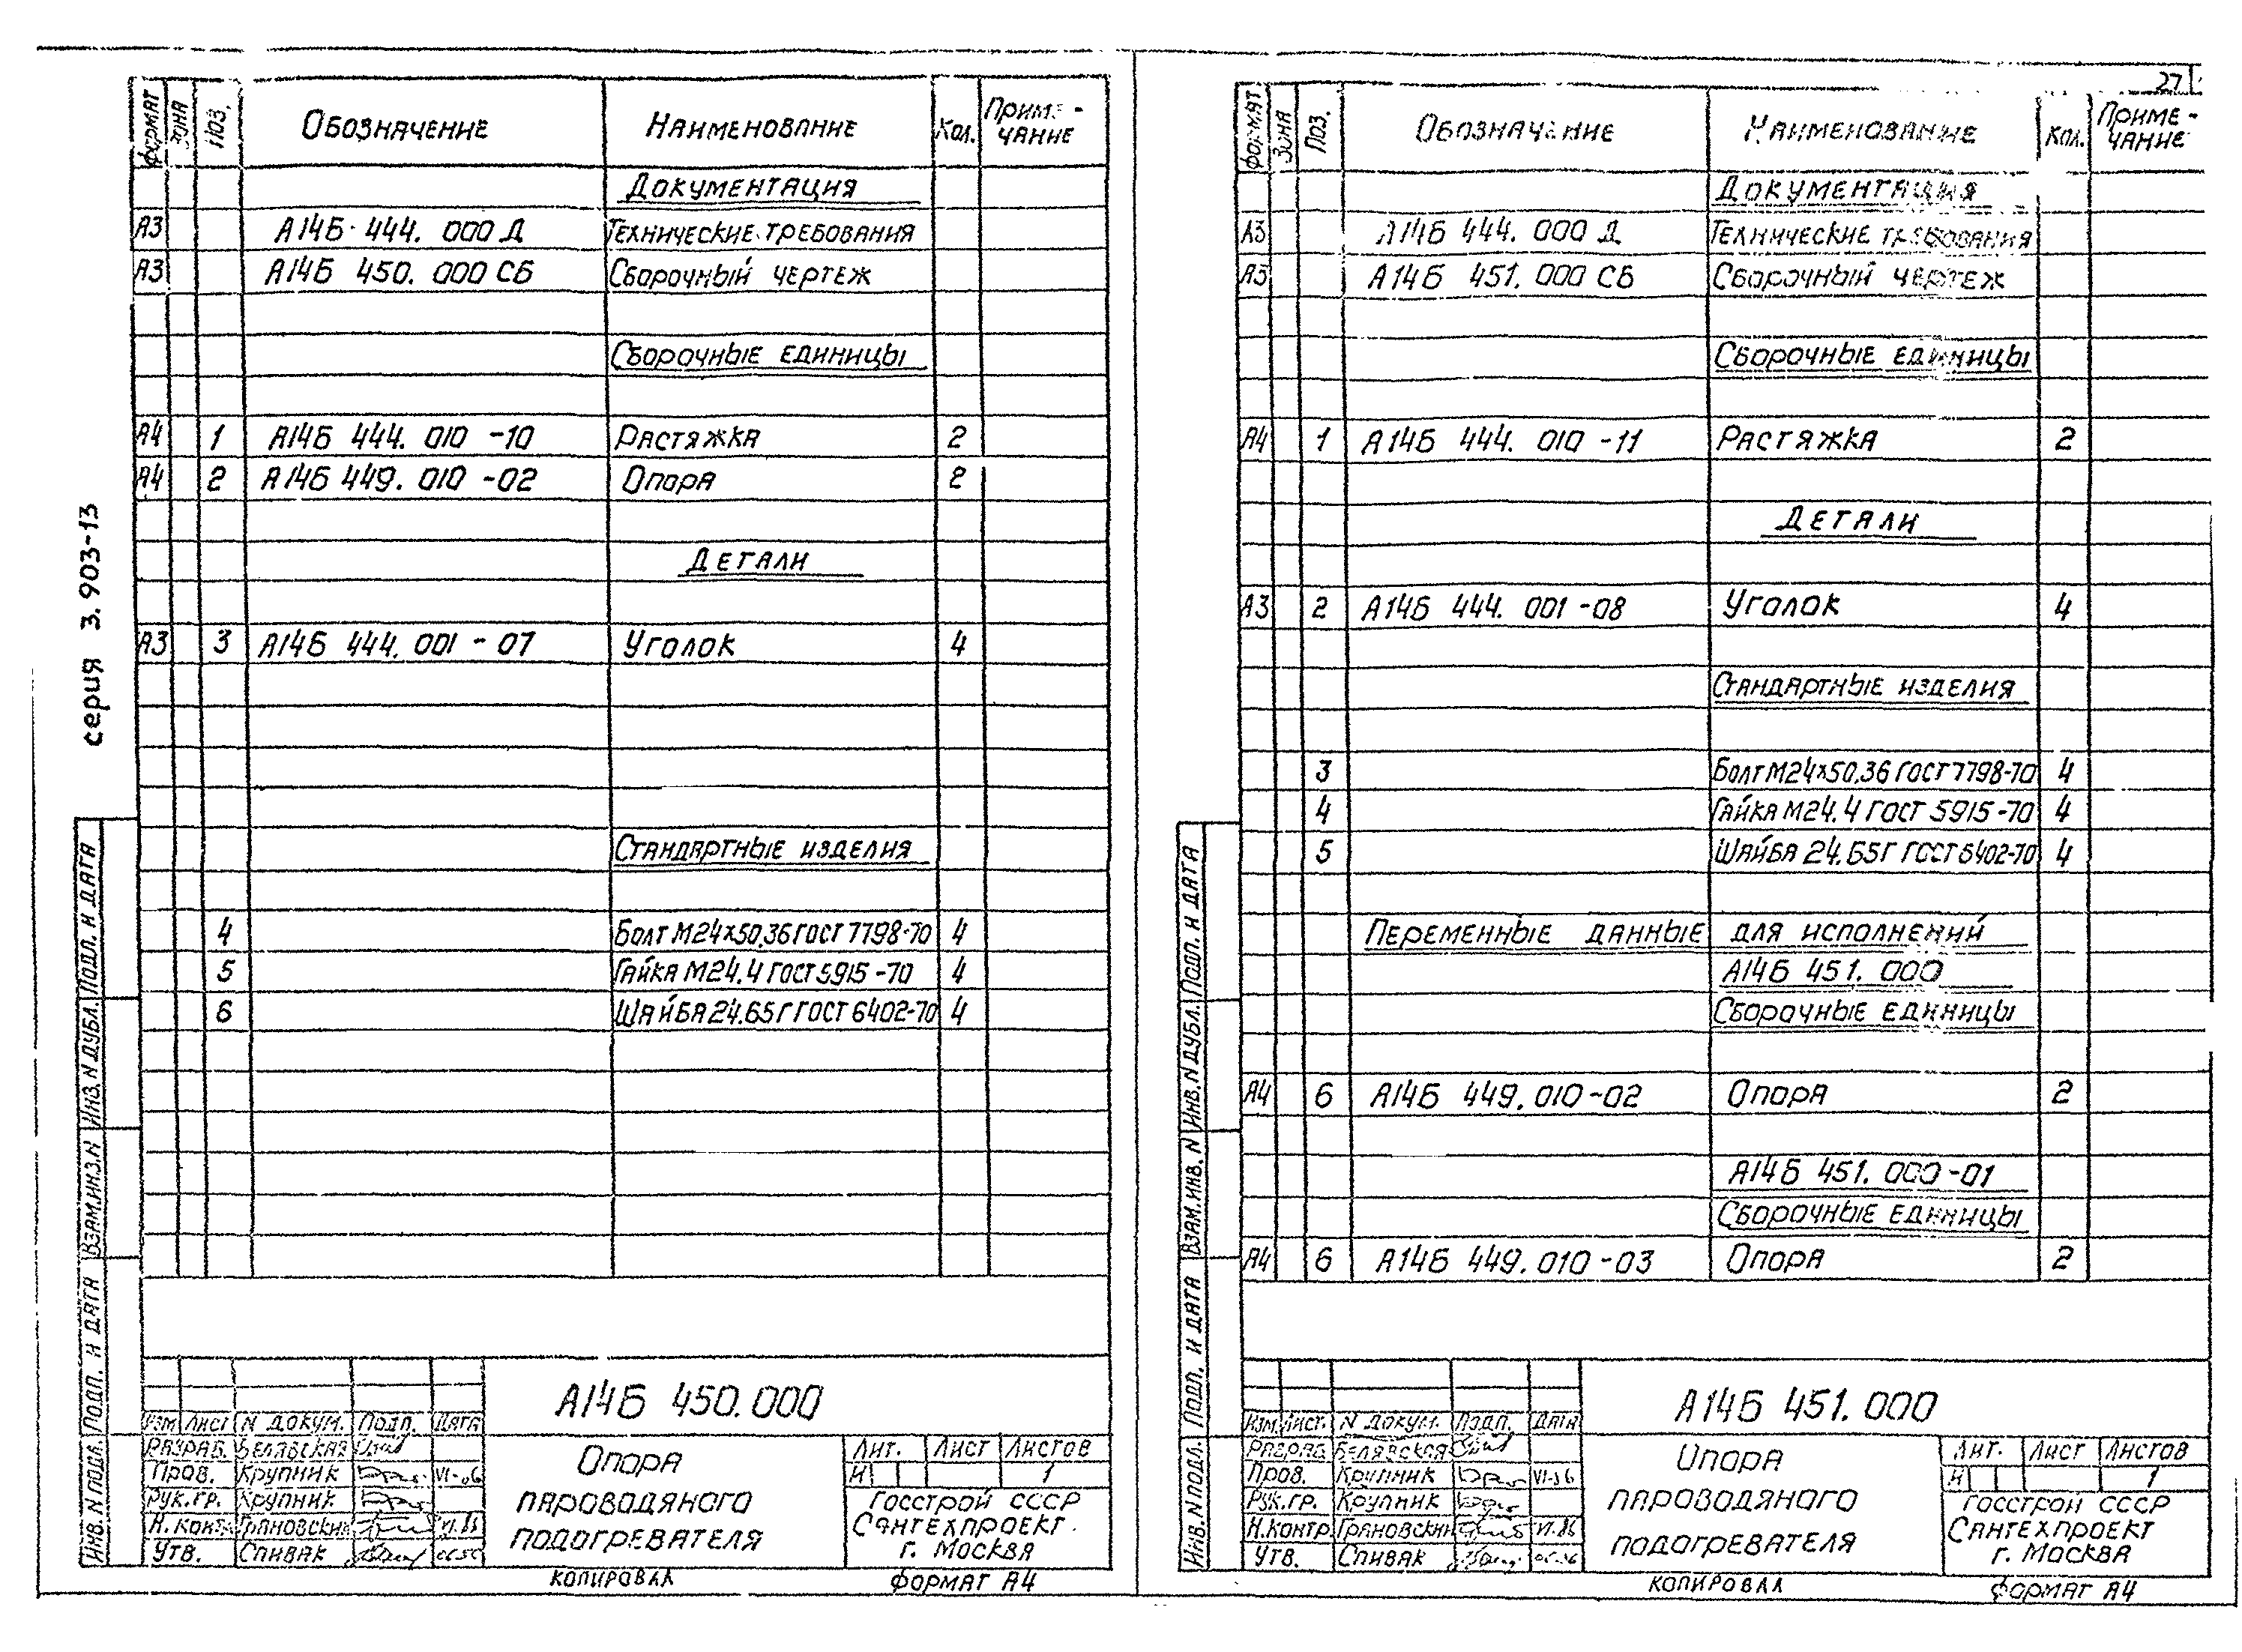 серия 3.903-13
Формат Зона Поз. Обозначение Наименование Кол. Приме-
чание
Документация
А3 А14Б 444.000 Д Технические требования
А3 А14Б 450.000 СБ Сборочный чертеж
Сборочные единицы
А4 1 А14Б 444.010-10 Растяжка 2
А4 2 А14Б 449.010-02 Опора 2
Детали
А3 3 А14Б 444.001-07 Уголок 4
Стандартные изделия
4 Болт М24х50.36 ГОСТ 7798-70 4
5 Гайка М24.4 ГОСТ 5915-70 4
6 Шайба 24.65Г ГОСТ 6402-70 4
Инв. N подл. Подп. и дата Взам. инв. N Инв. N дубл. Подп. и дата
А14Б 450.000
Изм Лист N докум. Подп. Дата
Разраб. Белявская
Пров. Крупник
Рук.гр. Крупник
Н.контр. Грановский VI.86
Утв. Спивак
Опора
пароводяного
подогревателя
Лит. Лист Листов
И 1
Госстрой СССР
Сантехпроект
г. Москва
Копировал Формат А4
27
Формат Зона Поз. Обозначение Наименование Кол. Приме-
чание
Документация
А3 А14Б 444.000 Д Технические требования
А3 А14Б 451.000 СБ Сборочный чертеж
Сборочные единицы
А4 1 А14Б 444.010-11 Растяжка 2
Детали
А3 2 А14Б 444.001-08 Уголок 4
Стандартные изделия
3 Болт М24х50.36 ГОСТ 7798-70 4
4 Гайка М24.4 ГОСТ 5915-70 4
5 Шайба 24.65Г ГОСТ 6402-70 4
Переменные данные для исполнений
А14Б 451.000
Сборочные единицы
А4 6 А14Б 449.010-02 Опора 2
А14Б 451.000-01
Сборочные единицы
А4 6 А14Б 449.010-03 Опора 2
Инв. N подл. Подп. и дата Взам. инв. N Инв. N дубл. Подп. и дата
А14Б 451.000
Изм. Лист. N докум. Подп. Дата
Разраб. Белявская
Пров. Крупник VI-86
Рук.гр. Крупник
Н.контр. Грановский VI.86
Утв. Спивак
Опора
пароводяного
подогревателя
Лит. Лист Листов
И 1
Госстрой СССР
Сантехпроект
г. Москва
Копировал Формат А4